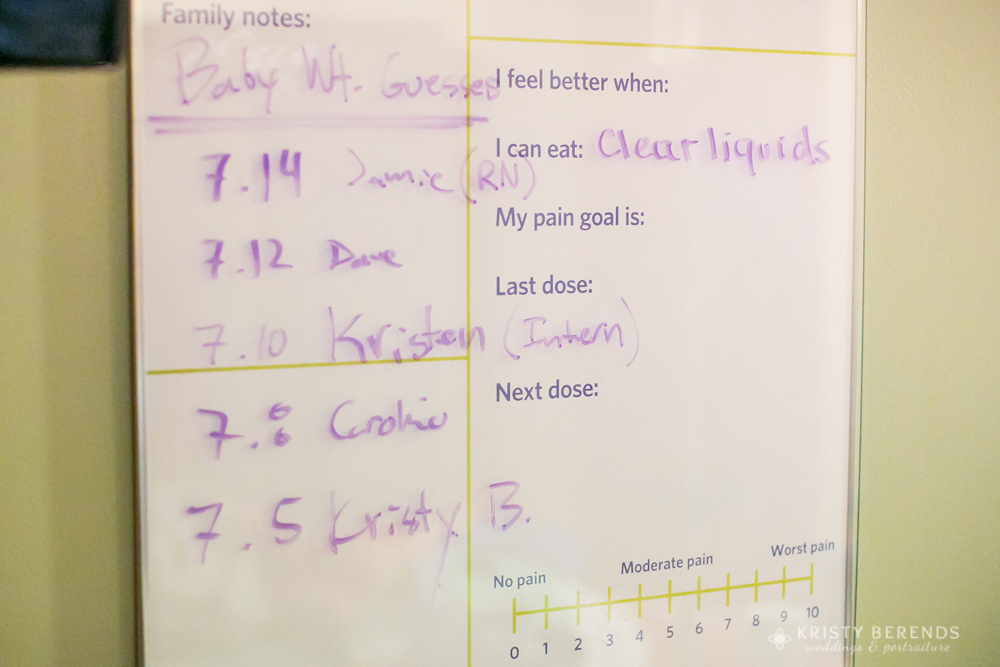 Family notes:
Baby Wt. Guesses
7.14 Jamie (RN)
7.12 Dave
7.10 Kristen (Intern)
7.
7.5 Kristy B.
I feel better when:
I can eat: Clear liquids
My pain goal is:
Last dose:
Next dose:
No pain
Moderate pain
Worst pain
0 1 2 3 4 5 6 7 8 9 10
KRISTY BERENDS
weddings & portraiture